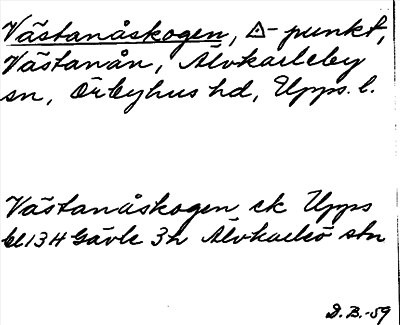 Västanåskogen, △-punkt,
Västanån, Älvkarleby
sn, Örbyhus hd, Upps. l.
Västanåskogen ek Upps
bl 13 H Gävle 3h Älvkarleö stn
D.B.-59